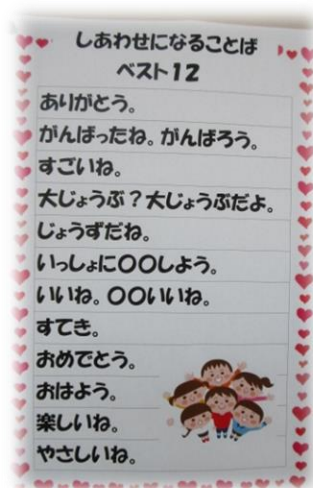 しあわせになることば
ベスト12
ありがとう。
がんばったね。がんばろう。
すごいね。
大じょうぶ？大じょうぶだよ。
じょうずだね。
いっしょに〇〇しよう。
いいね。〇〇いいね。
すてき。
おめでとう。
おはよう。
楽しいね。
やさしいね。